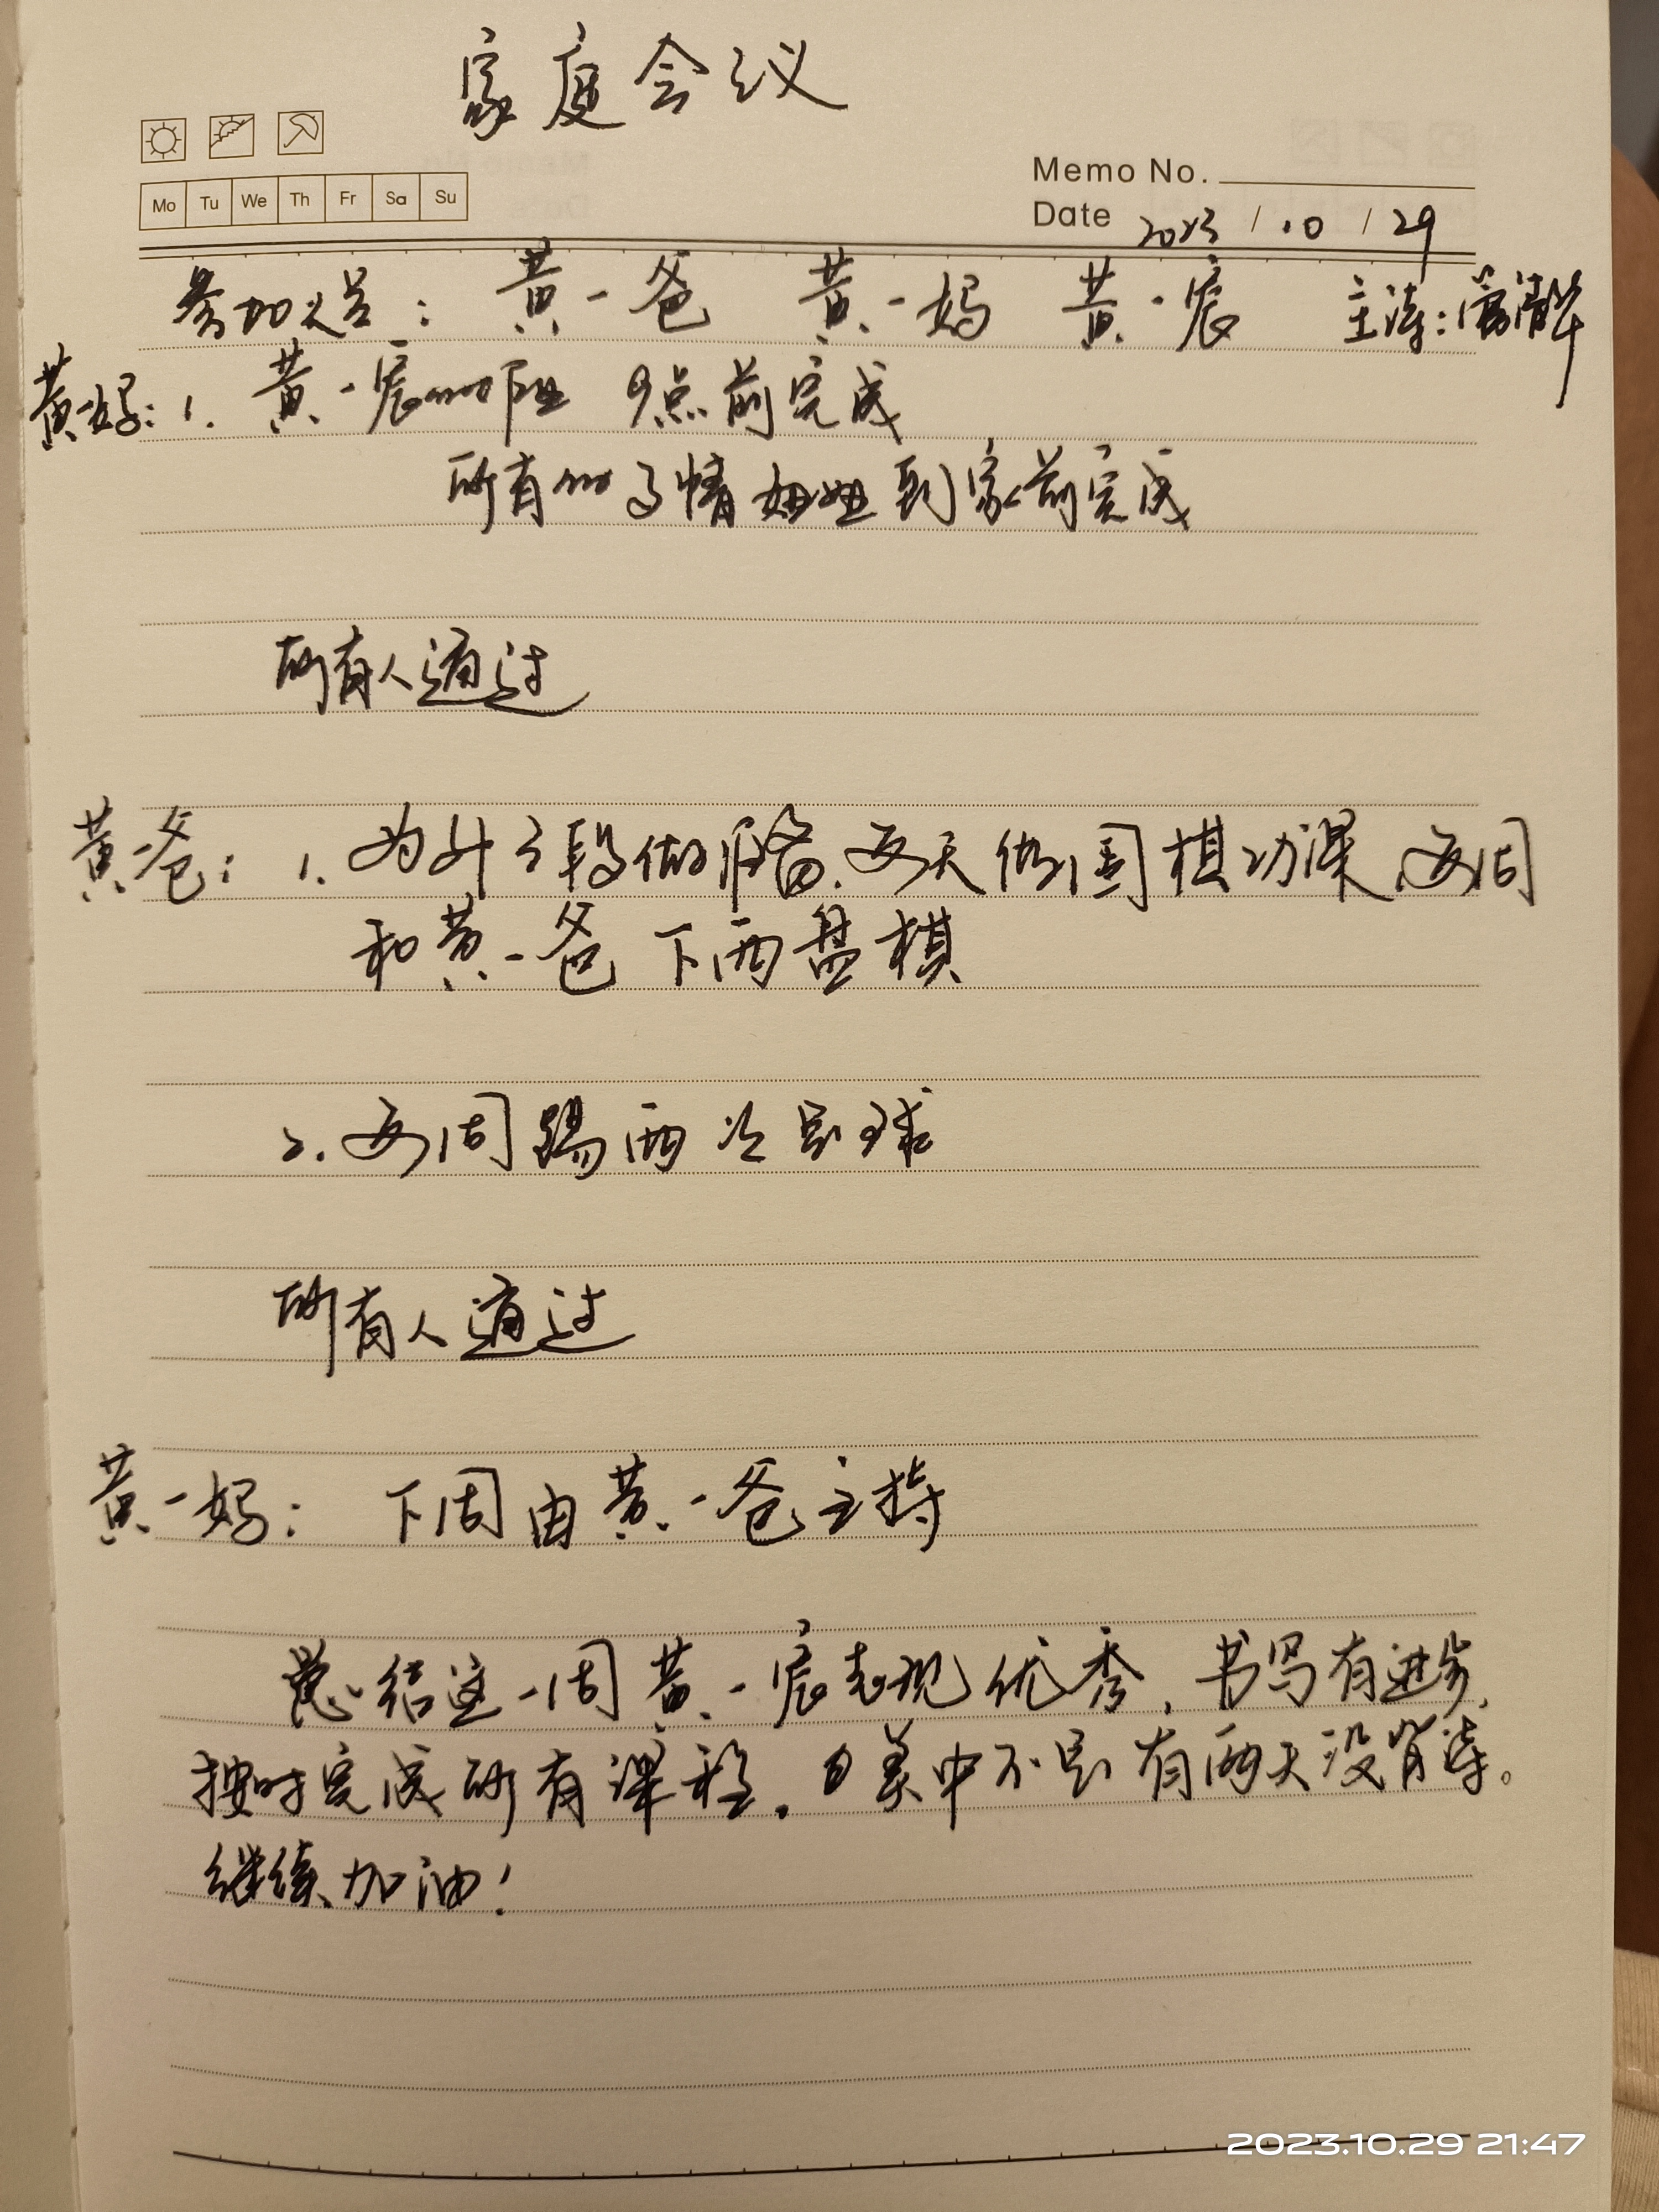 家庭会议
Memo No.
Mo Tu We Th Fr Sa Su
Date 2023 / 10 / 29
参加人员: 黄一爸 黄一妈 黄一宸 主持:
黄一妈: 1. 黄一宸 9点前完成
所有的事情妞妞到家前完成
所有人通过
黄一爸: 1. 为升3段做准备,每天做围棋功课,每周
和黄一爸下两盘棋
2. 每周踢两次足球
所有人通过
黄一妈: 下周由黄一爸主持
总结这一周黄一宸表现优秀,书写有进步,
按时完成所有课程。美中不足有两天没背诗。
继续加油!
2023.10.29 21:47